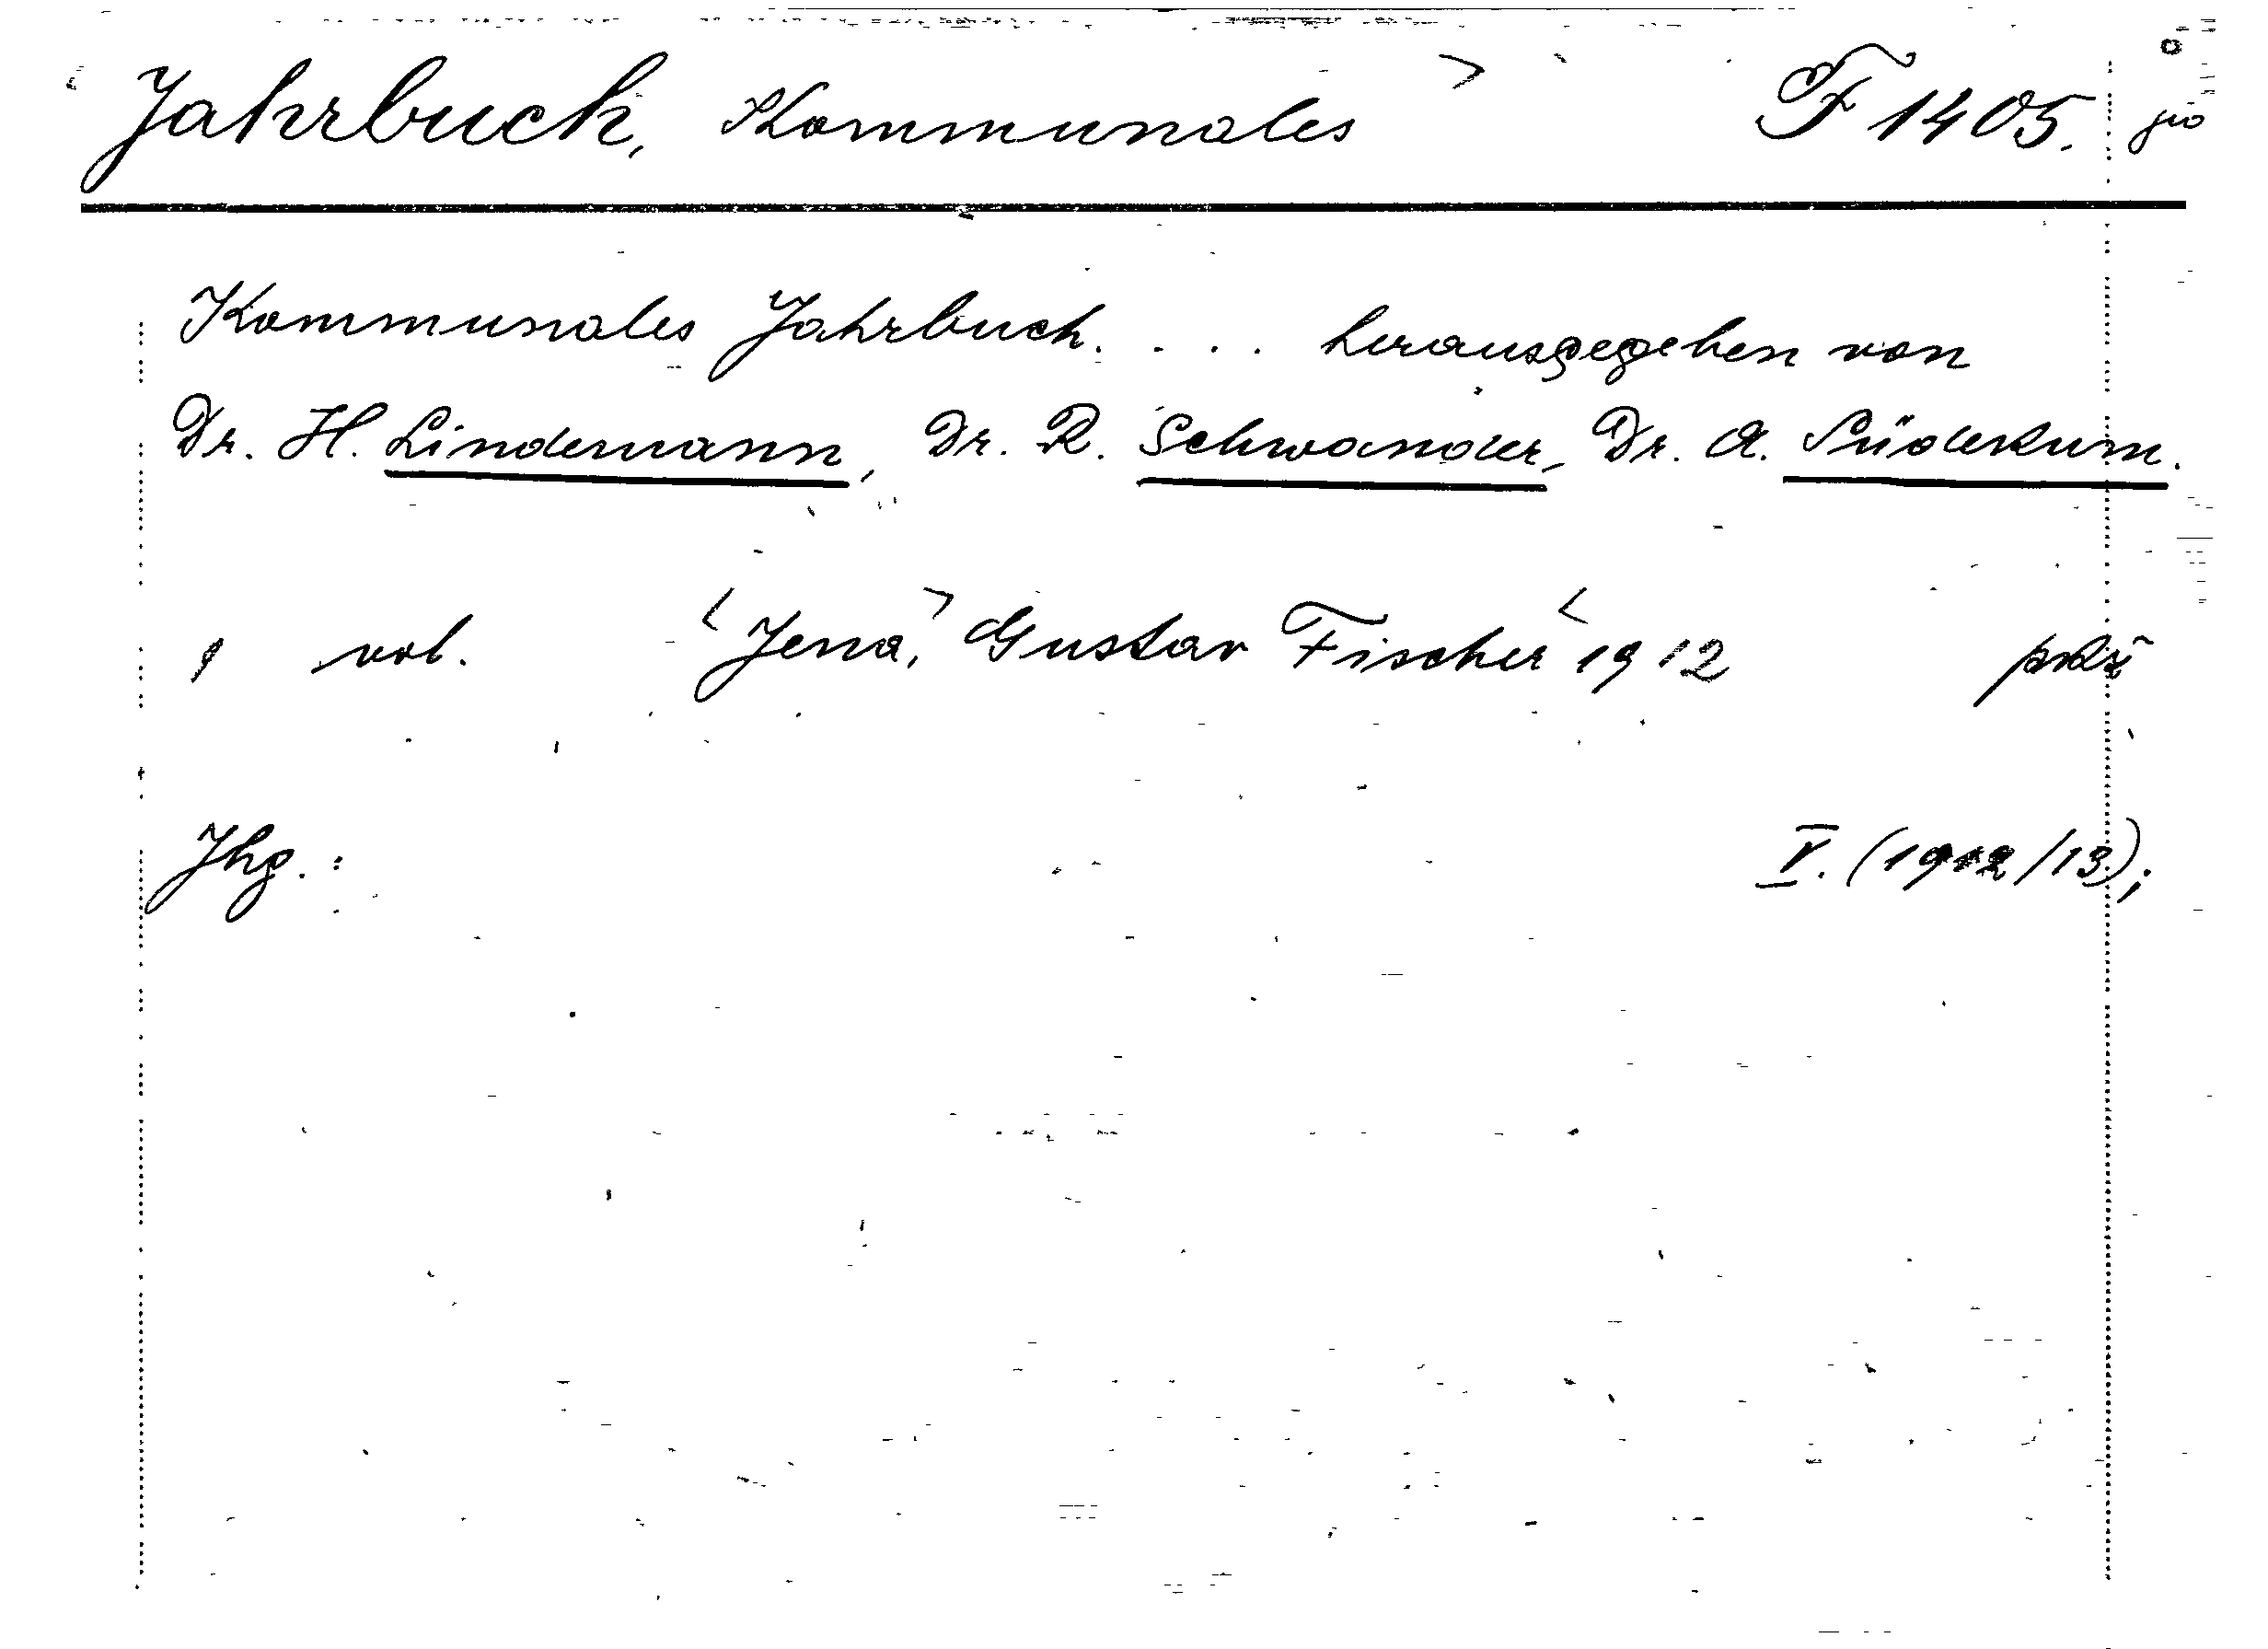 Jahrbuch, Kommunales F 1405.
Kommunales Jahrbuch. . . . herausgegeben von
Dr. H. Lindemann, Dr. R. Schwander, Dr. A. Südekum.
1 vol. Jena, Gustav Fischer 1912
Jhg.: V. (1912/13);